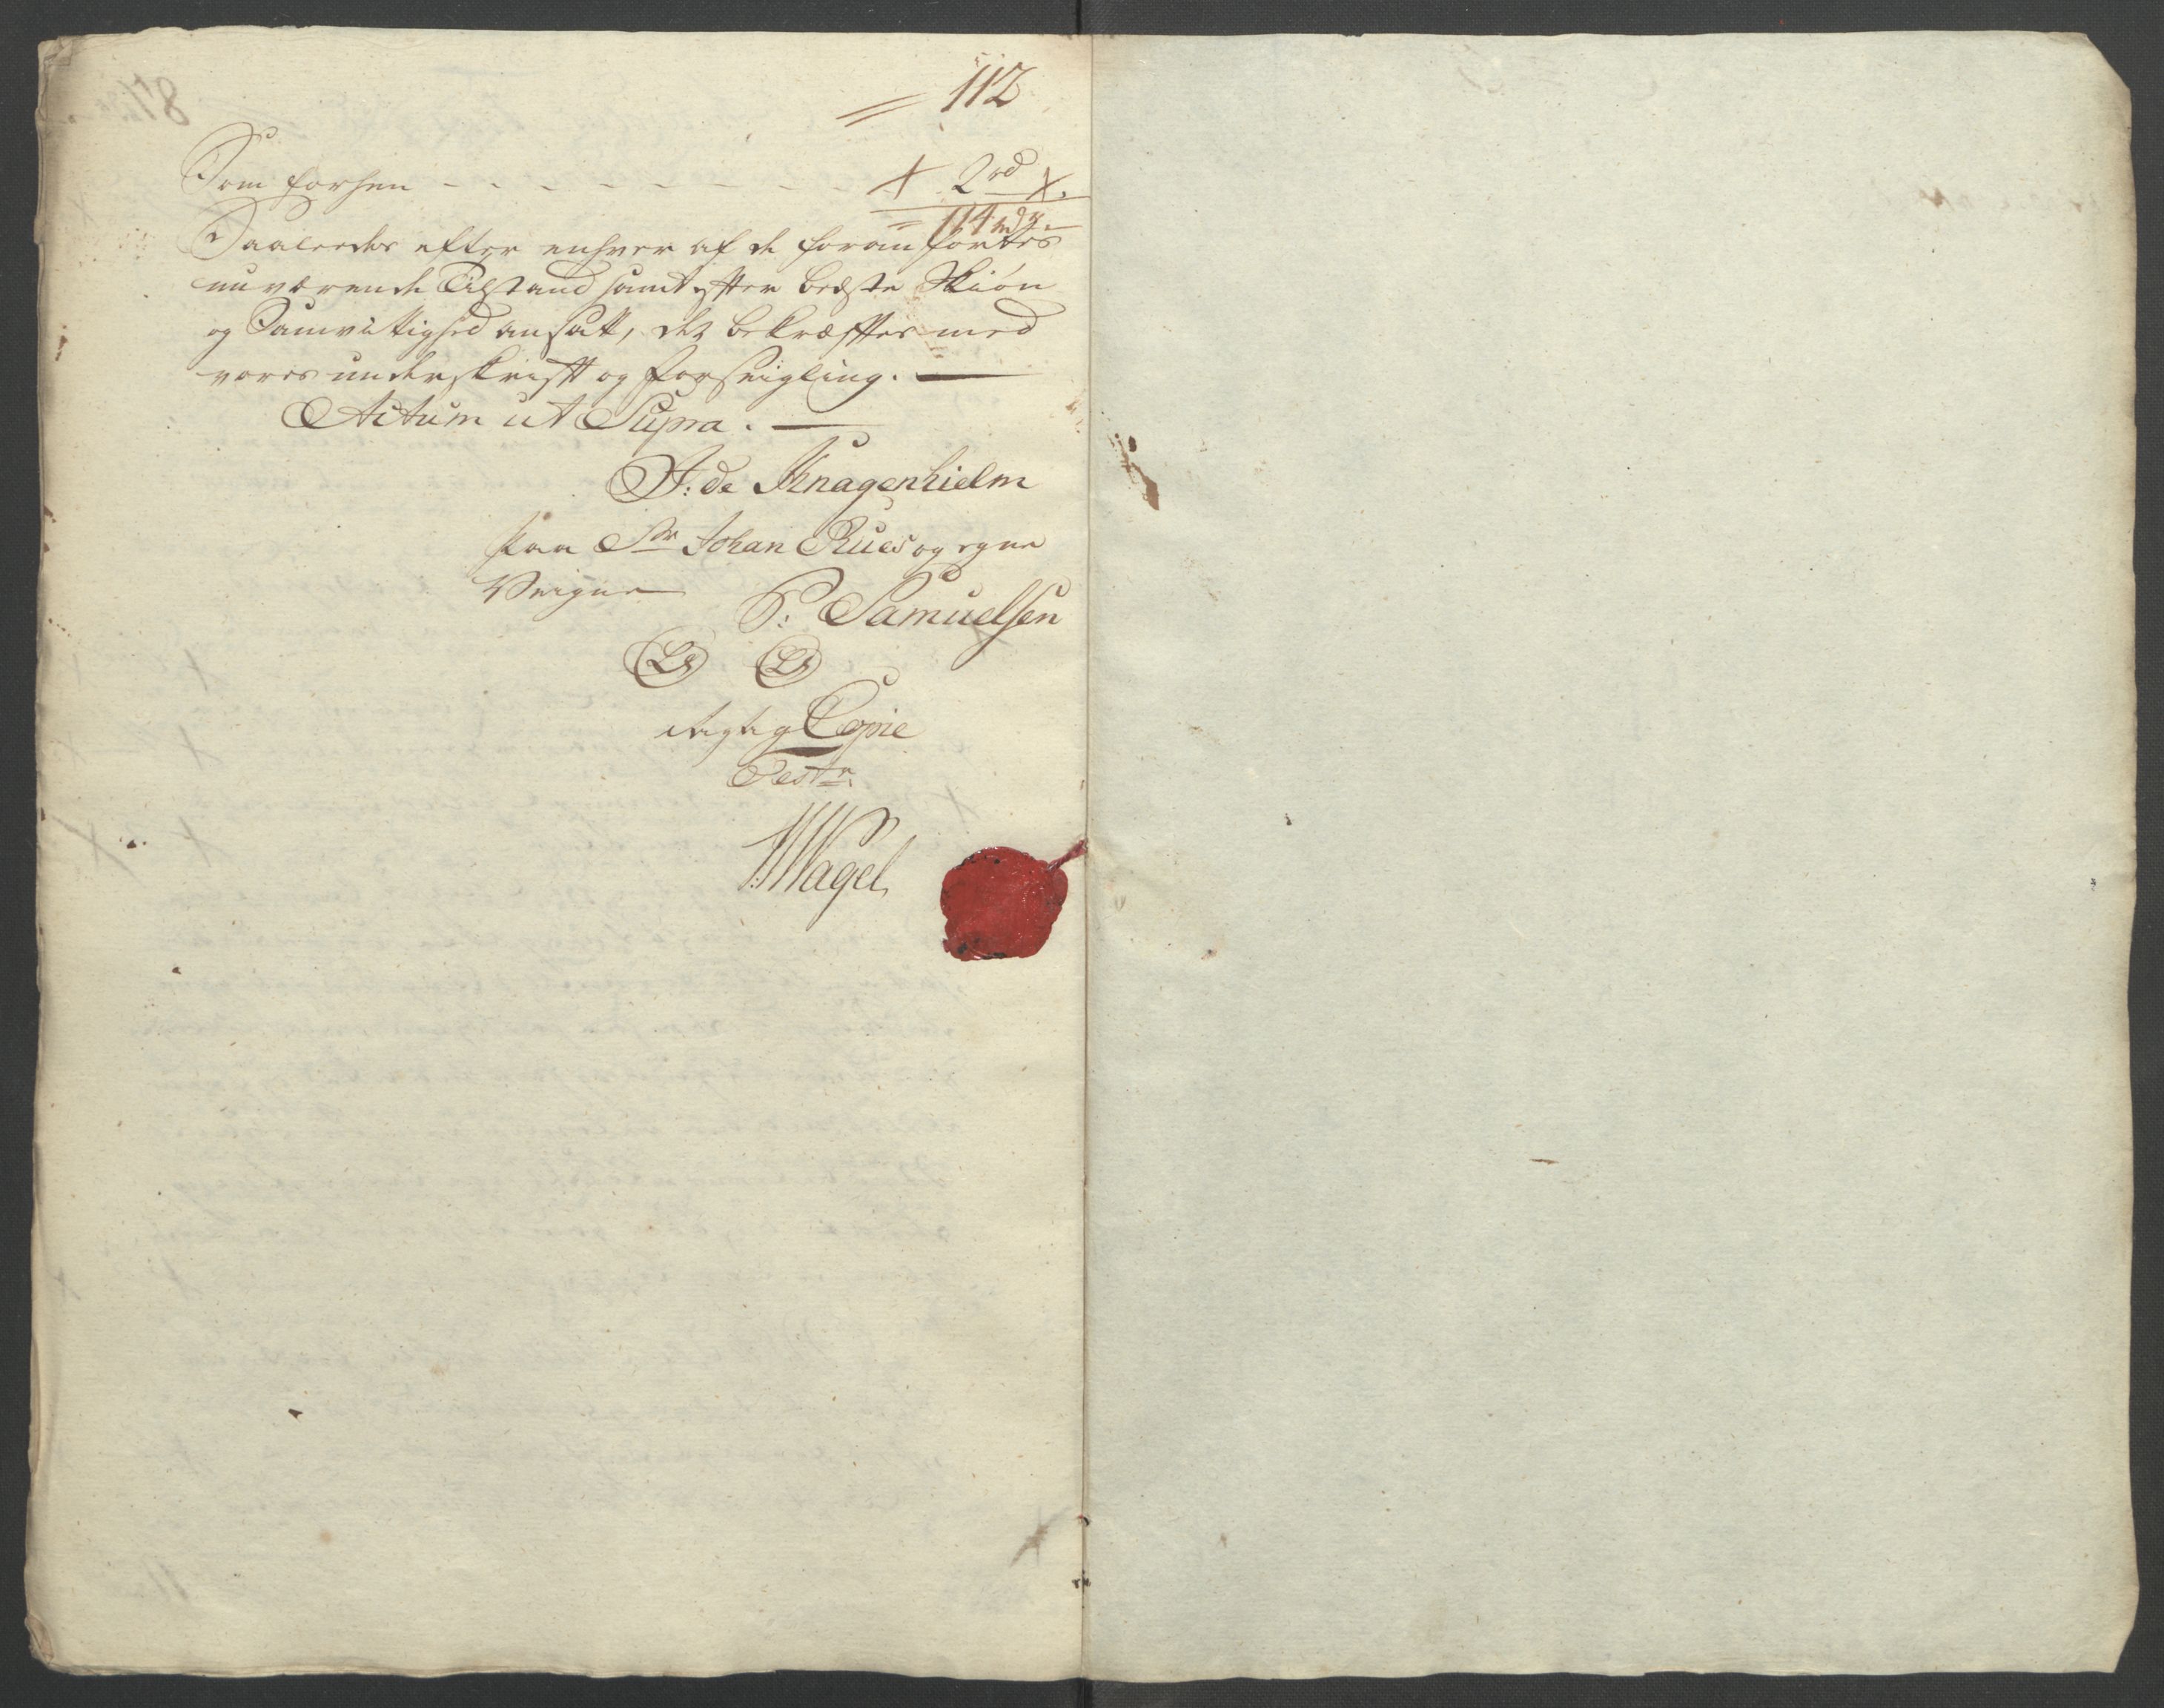 = 112
Som forhen - - - - - - - - - + 2 rd X.
= 114 rd
Saaledes efter enhver af de foranførtes
nuværende Tilstand samt efter bedste Skiøn
og Samvittighed ansatt, det bekræfftes med
vores underskrifft og forseigling. —
Actum ut Supra. —
J: de Knagenhielm
Paa Sr Johan Rues og egne
Veigne
P: Samuelsen
LS LS
rigtig Copie
Test:
HWagel